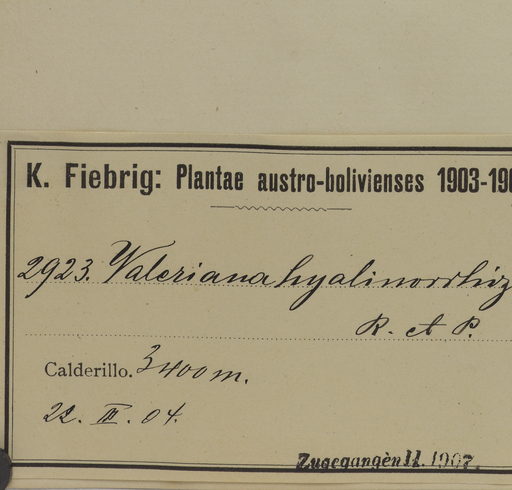 K. Fiebrig: Plantae austro-bolivienses 1903-190
2923. Valeriana hyalinorrhiz
R. et P.
Calderillo. 3400 m.
22. III. 04.
Zugegangen 11. 1907.